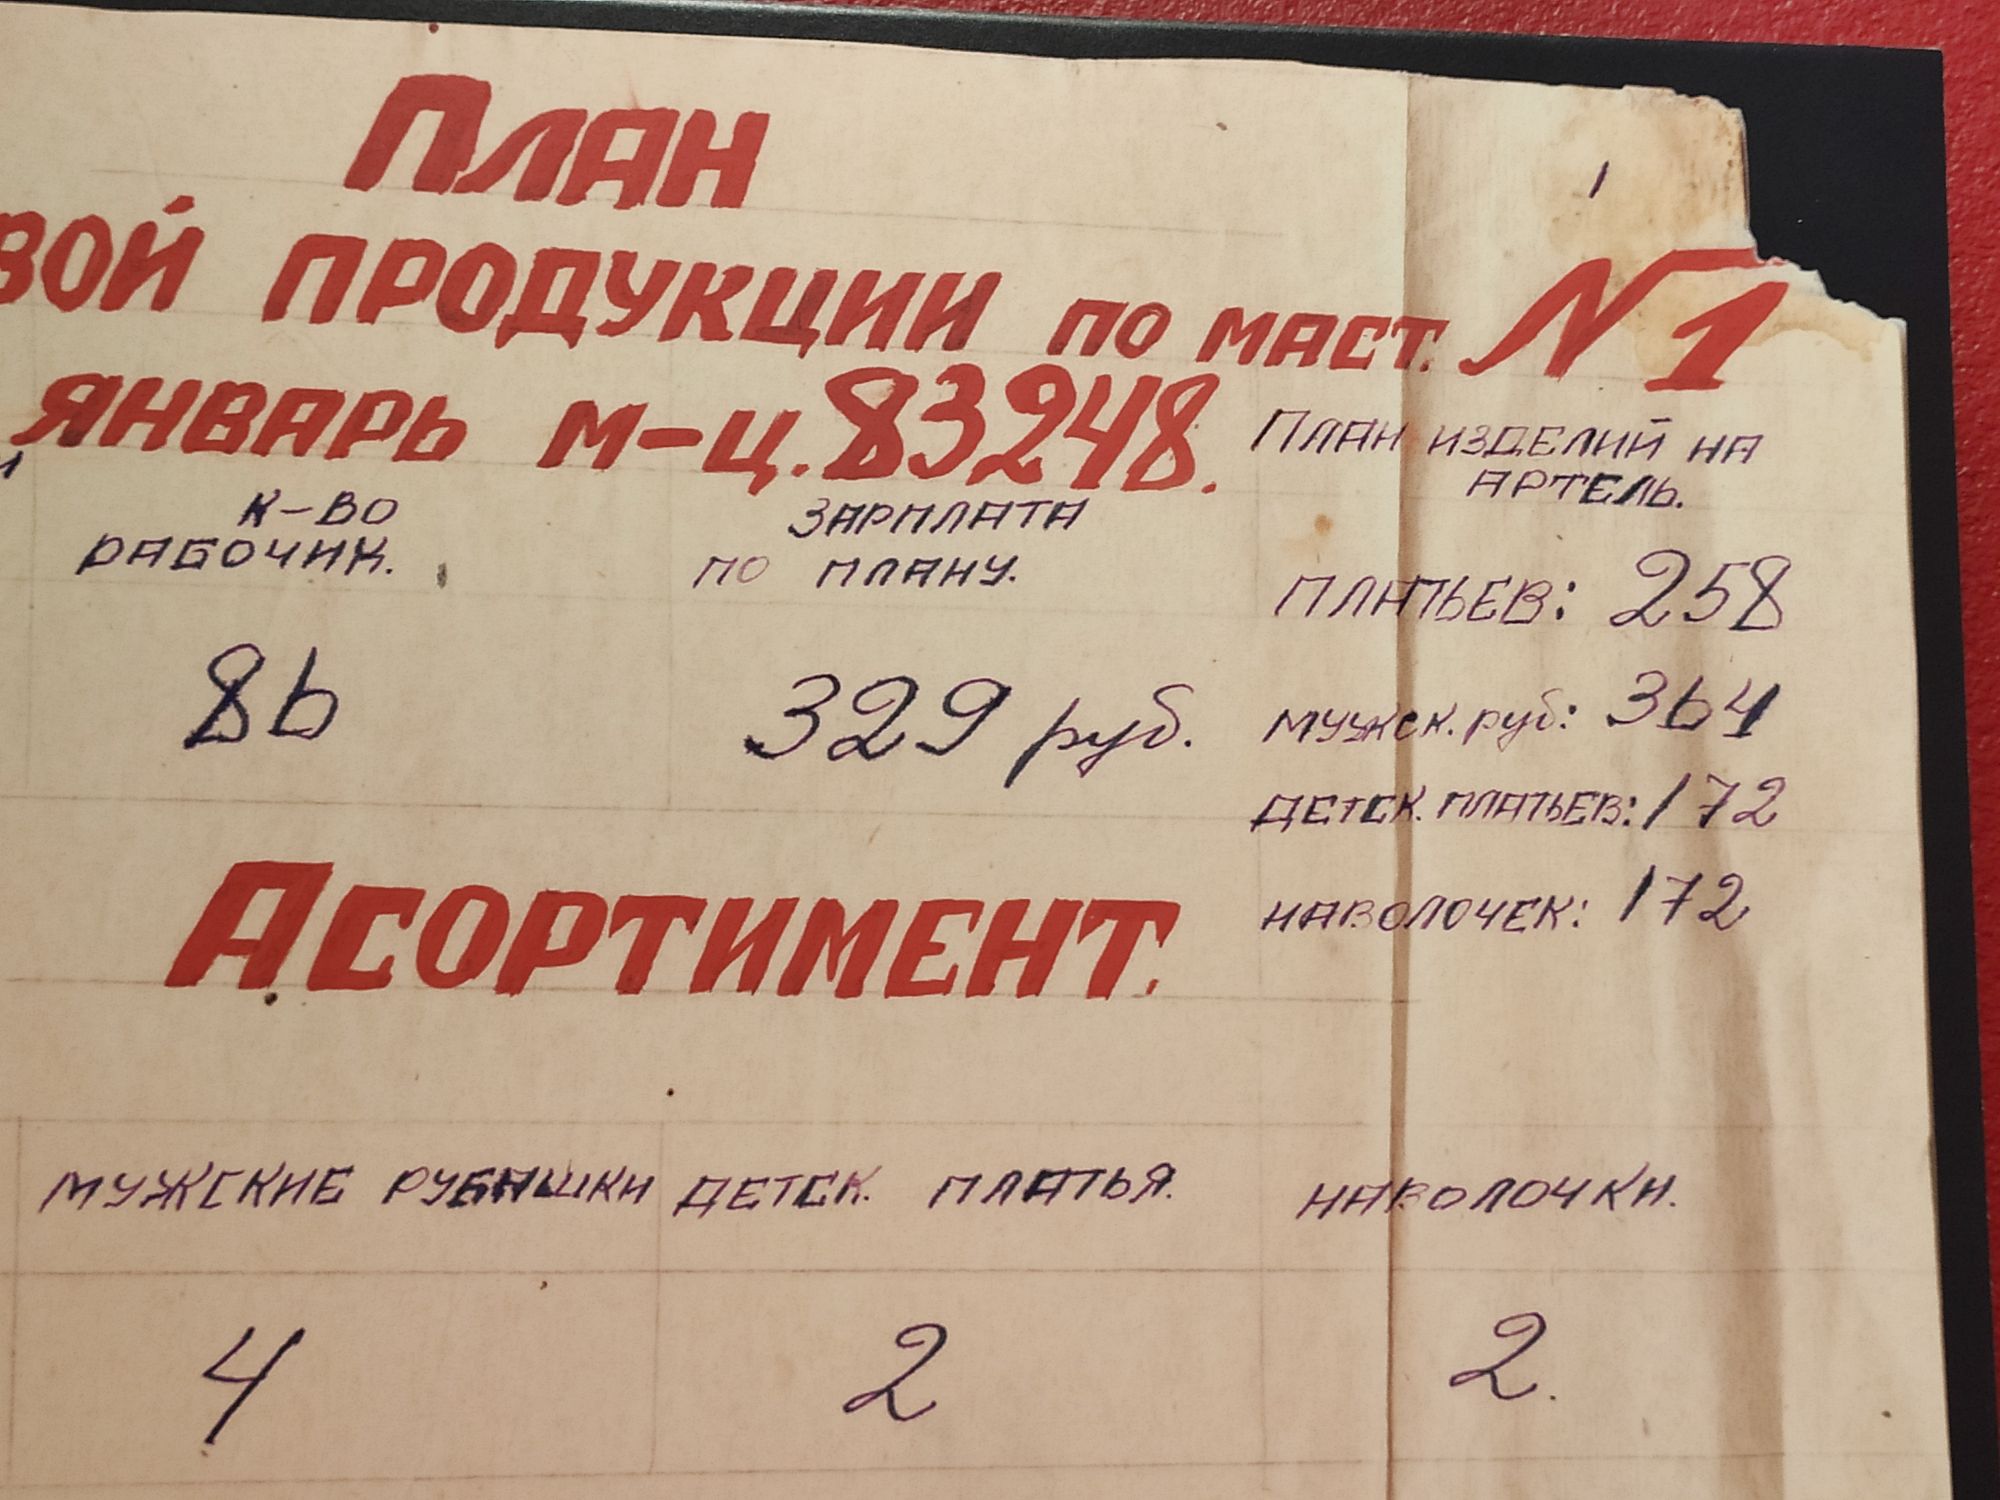 ПЛАН
ВОЙ ПРОДУКЦИИ ПО МАСТ. N1
ЯНВАРЬ М-Ц. 83248.
ПЛАН ИЗДЕЛИЙ НА
АРТЕЛЬ.
К-ВО
РАБОЧИХ.
ЗАРПЛАТА
ПО ПЛАНУ.
86
329 руб.
ПЛАТЬЕВ: 258
МУЖСК. руб: 364
ДЕТСК. ПЛАТЬЕВ: 172
НАВОЛОЧЕК: 172
АСОРТИМЕНТ.
МУЖСКИЕ РУБАШКИ
ДЕТСК. ПЛАТЬЯ.
НАВОЛОЧКИ.
4
2
2.